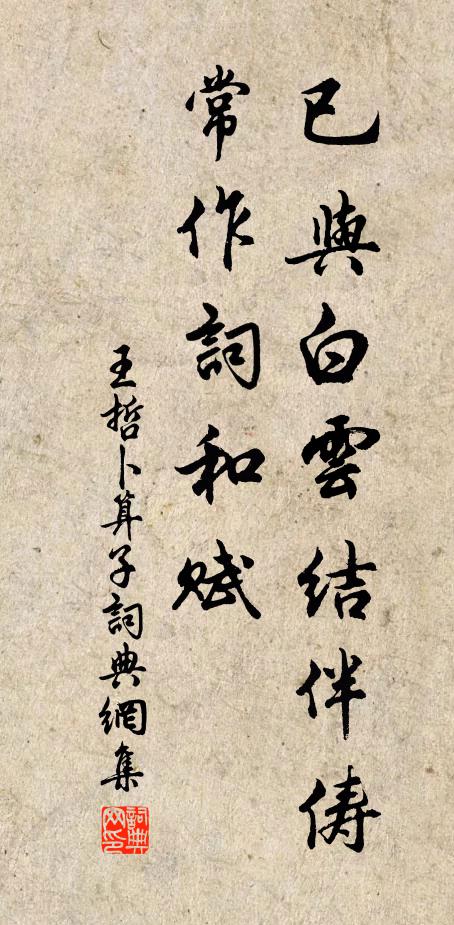 已與白雲結伴儔
常作詞和赋
王哲卜算子詞典網集
詞典网印